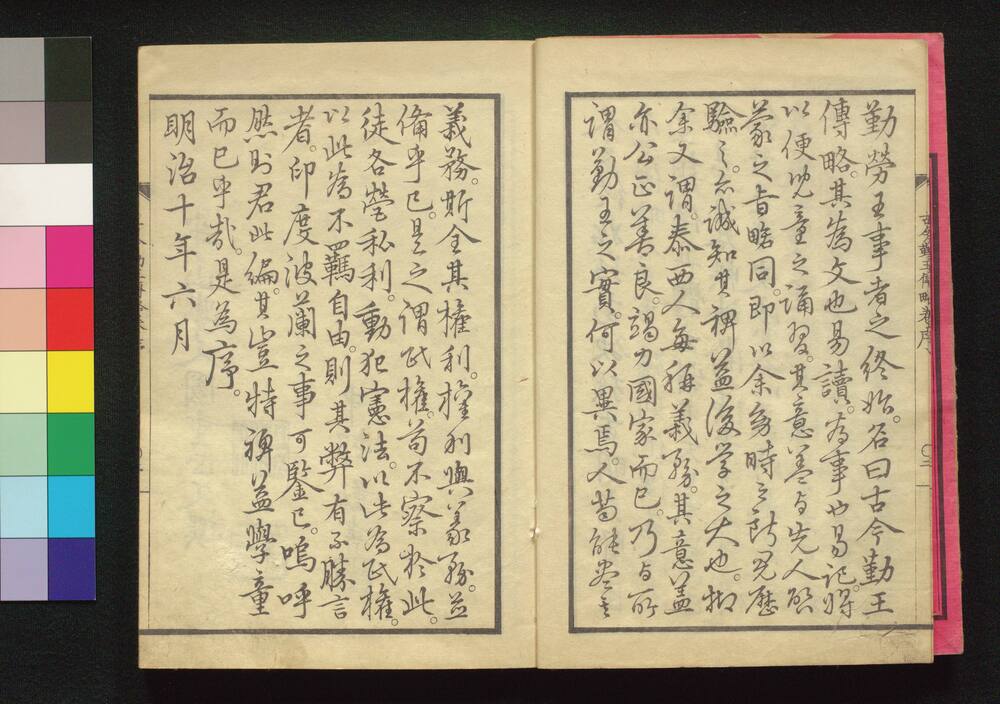 勤勞王事者之終始。名曰古今勤王
傳略。其為文也易讀。為事也易記。將
以便児童之誦習。其意盖与先人啓
蒙之旨略同。即以余幼時之所見歴
驗之。亦誠知其裨益後学之大也。抑
余又謂。泰西人每稱義務。其意盖
亦公正善良。竭力國家而已。乃与所
謂勤王之實。何以異焉。人苟能盡其
義務。斯全其權利。權利與義務。並
備乎已。是之謂民權。苟不察於此。
徒各營私利。動犯憲法。以此為民權。
以此為不羈自由。則其弊有不勝言
者。印度波蘭之事可鑒已。嗚呼
然則君此編。其豈特裨益學童
而已乎哉。是為序。
明治十年六月
古今勤王傳略卷序